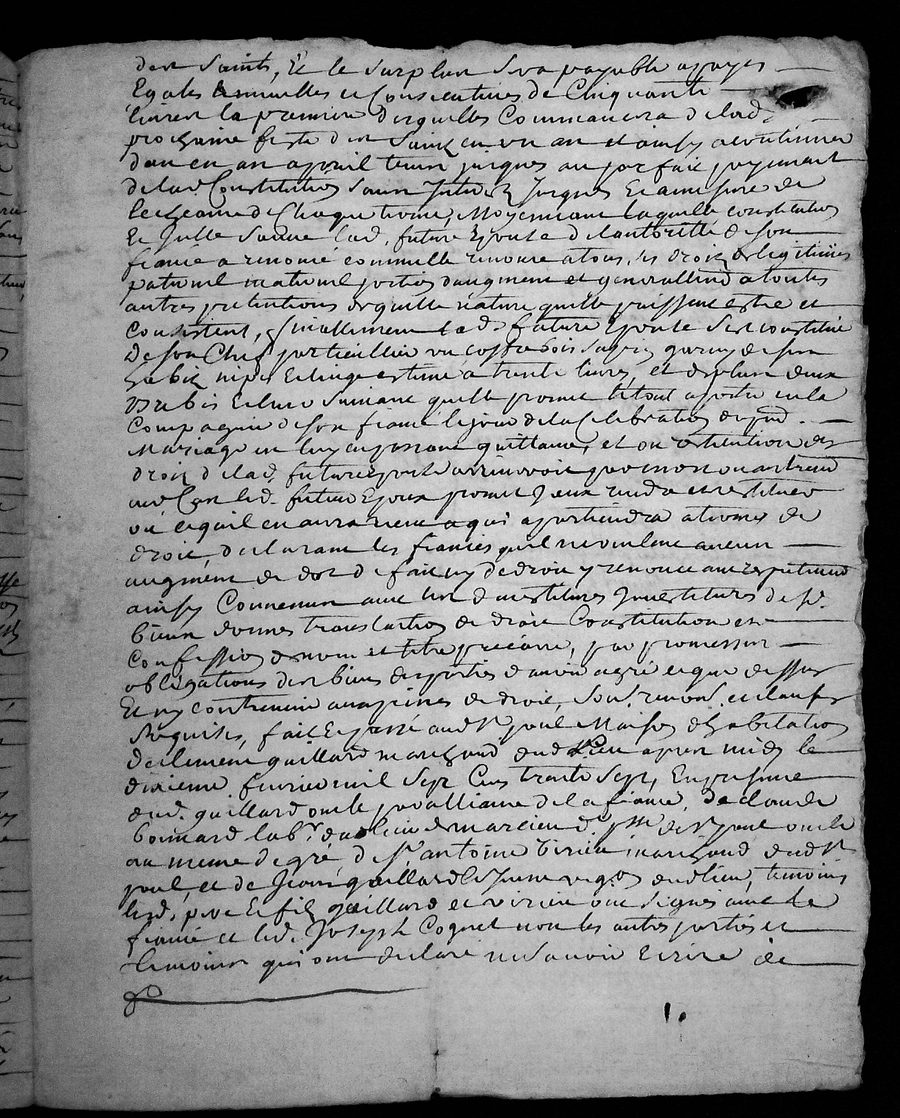 des Saints, Et le surplus sera payable a payes
Egales Annuelles et Consecutives de Cinquante
livres la premiere desquelles Commancera de lad.
prochaine feste des Saints en un an et ainsy a continuer
dan en an a pareil terme jusques au parfait payement
de lad. Constitution sans Interest jusques Et a mesure de
lescheance de Chaque terme, Moyennant laquelle constitution
Et Juste lad. future Epouse de lautorité de son
fiancé a renoncé comme elle renonce a tous ses droits de legitimes
paternel maternel portion daugment et generallement a toutes
autres pretentions de quelle nature quelle puissent estre et
Consistent, finallement lad. future Epouse sest constitué
de son Chef particullier un coffre bois sapin garny de ses
habits nipes Et linge estimé a trente livres, et de plus deux
Brebis Et leur suivant quelle promet le tout aporter en la
Compagnie de son fiancé le jour de la Celebration du pnt.
Mariage en luy en passant quittance, et ou restitution des
droits de lad. future Epouse arriveroit par mort ou autrement
aud. Cas led. futur Epoux promet Jceux rendre et restituer
ou ce quil en aura receu a qui apartiendra a forme de
droit, declarant les fiancés quil ne veulent aucun
augment de dot de fait ny de droit y renoncant respectivement
ainsy Convenu avec les devestitures Jnvestitures de sd.
biens donnés translation de droit Constitution et
Confession de nom et titre precaire, par promesses
obligations des biens desparties d'avoir agreé ce que dessus
Et ny contrevenir aux peines de droit, sous. renons. et clauses
Requises, fait Et passé aud. St. paul Maison d'habitation
de clement guillard marchand dud. Lieu apres midy le
dixieme fevrier mil Sept Cens trante Sept, En presence
dud. guillard oncle par alliance de la fiancée, de claude
boimard labr. dud. lieu de marcieu d. psse. de St. paul oncle
au meme degré de Sr. antoine virieu marchand dud. St.
paul, et de Jean guillard le Jeune vigon dud. lieu, temoins
lesd. pere Et fils guillard et virieu ont signés avec le
fiancé et led. Joseph Coquet non les autres parties et
temoins qui ont declaré ne scavoir Ecrire de
1.